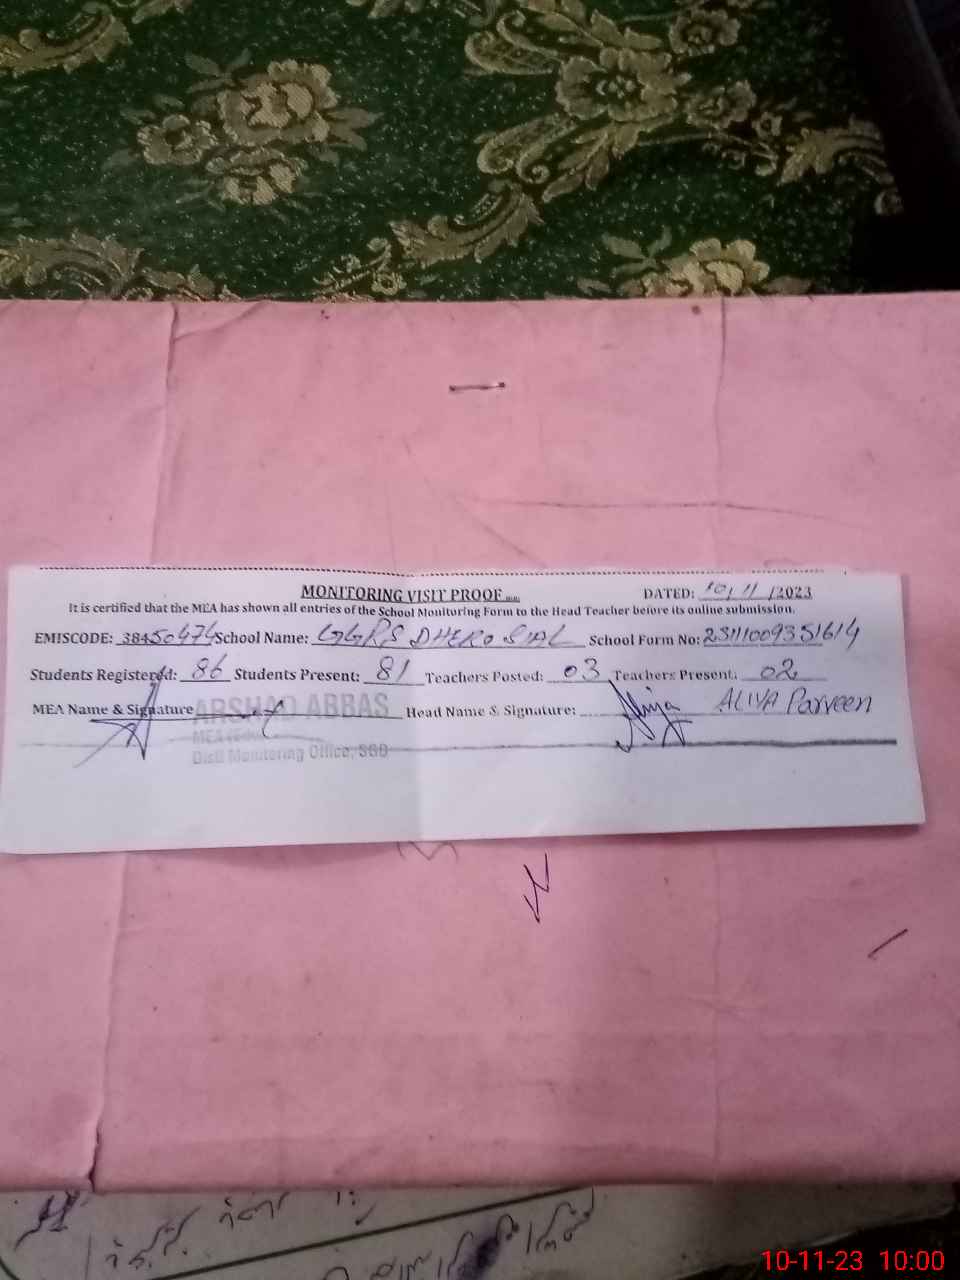 MONITORING VISIT PROOF DATED: 10/11/2023
It is certified that the MEA has shown all entries of the School Monitoring Form to the Head Teacher before its online submission.
EMISCODE: 38450474 School Name: GGPS DHERO SIAL School Form No: 23111009351614
Students Registered: 86 Students Present: 81 Teachers Posted: 03 Teachers Present: 02
MEA Name & Signature ARSHAD ABBAS Head Name & Signature: Aliya ALIYA Parveen
MEA
Distt Monitoring Office, SGD
10-11-23 10:00